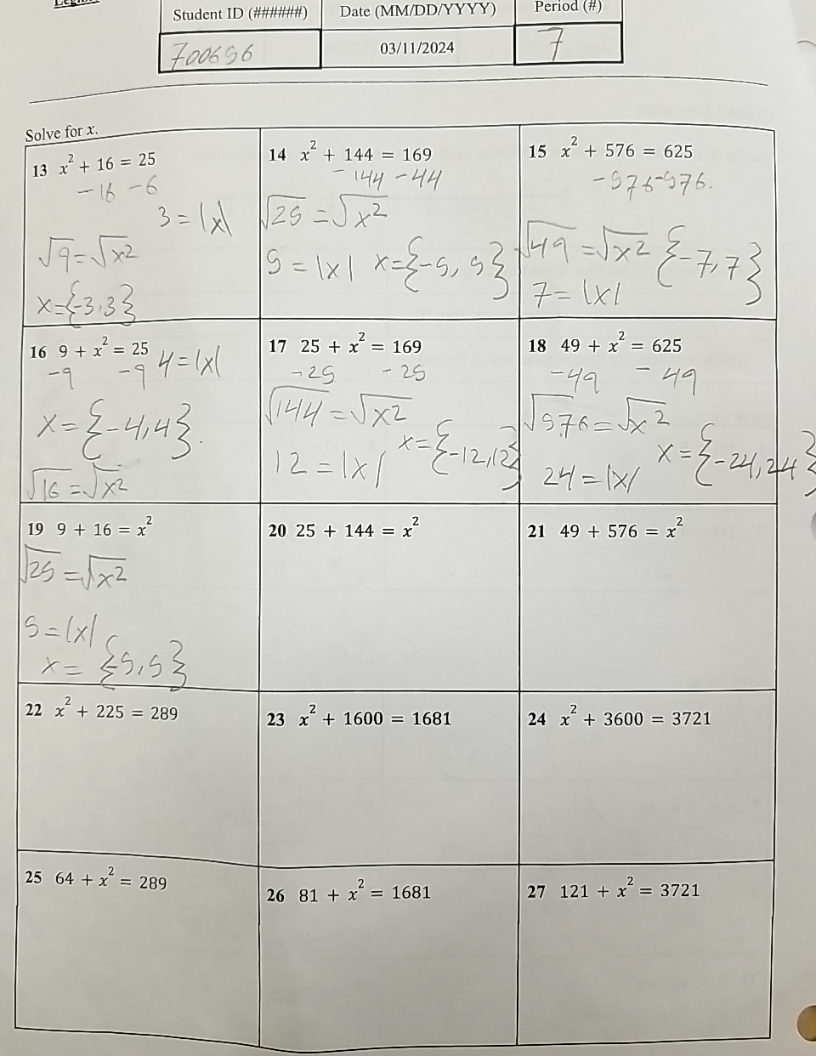 Student ID (######) Date (MM/DD/YYYY) Period (#)
700656 03/11/2024 7
Solve for x.
13 x² + 16 = 25
-16 -6
3 = |x|
√9 = √x²
x={-3,3}
14 x² + 144 = 169
-144 -44
√25 = √x²
5 = |x| x={-5, 5}
15 x² + 576 = 625
-576-576.
√49 = √x² {-7,7}
7 = |x|
16 9 + x² = 25
-9 -9 4=|x|
x={-4,4}.
√16 = √x²
17 25 + x² = 169
-25 -25
√144 = √x²
12 = |x| x={-12,12}
18 49 + x² = 625
-49 -49
√576 = √x²
24 = |x| x={-24,24}
19 9 + 16 = x²
√25 = √x²
5=|x|
x= {-5,5}
20 25 + 144 = x²
21 49 + 576 = x²
22 x² + 225 = 289
23 x² + 1600 = 1681
24 x² + 3600 = 3721
25 64 + x² = 289
26 81 + x² = 1681
27 121 + x² = 3721